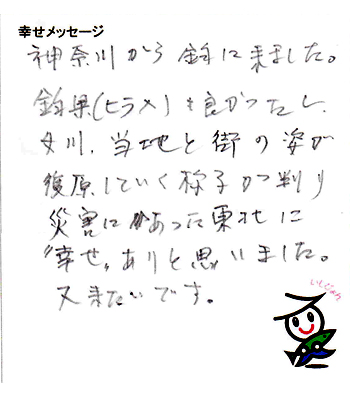 幸せメッセージ
神奈川から釣に来ました。
釣果(ヒラメ)も良かったし、
女川、当地と街の姿が
復原していく様子が判り
災害にあった東北に
"幸せ"ありと思いました。
又来たいです。